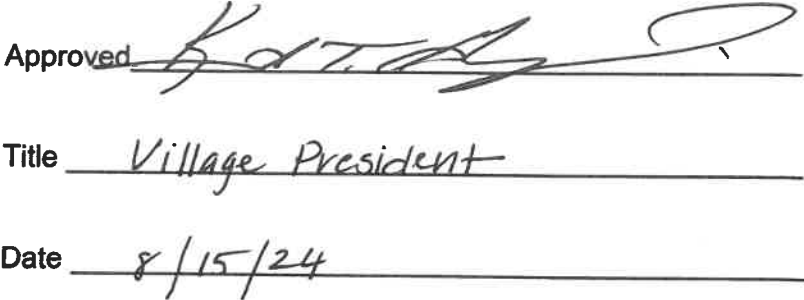 Approved
Title Village President
Date 8/15/24